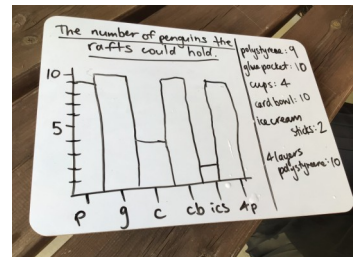 The number of penguins the
rafts could hold.
10
5
p g c cb ics 4p
polystyrene: 9
glue pocket: 10
cups: 4
card bowl: 10
ice cream
sticks: 2
4 layers
polystyrene: 10